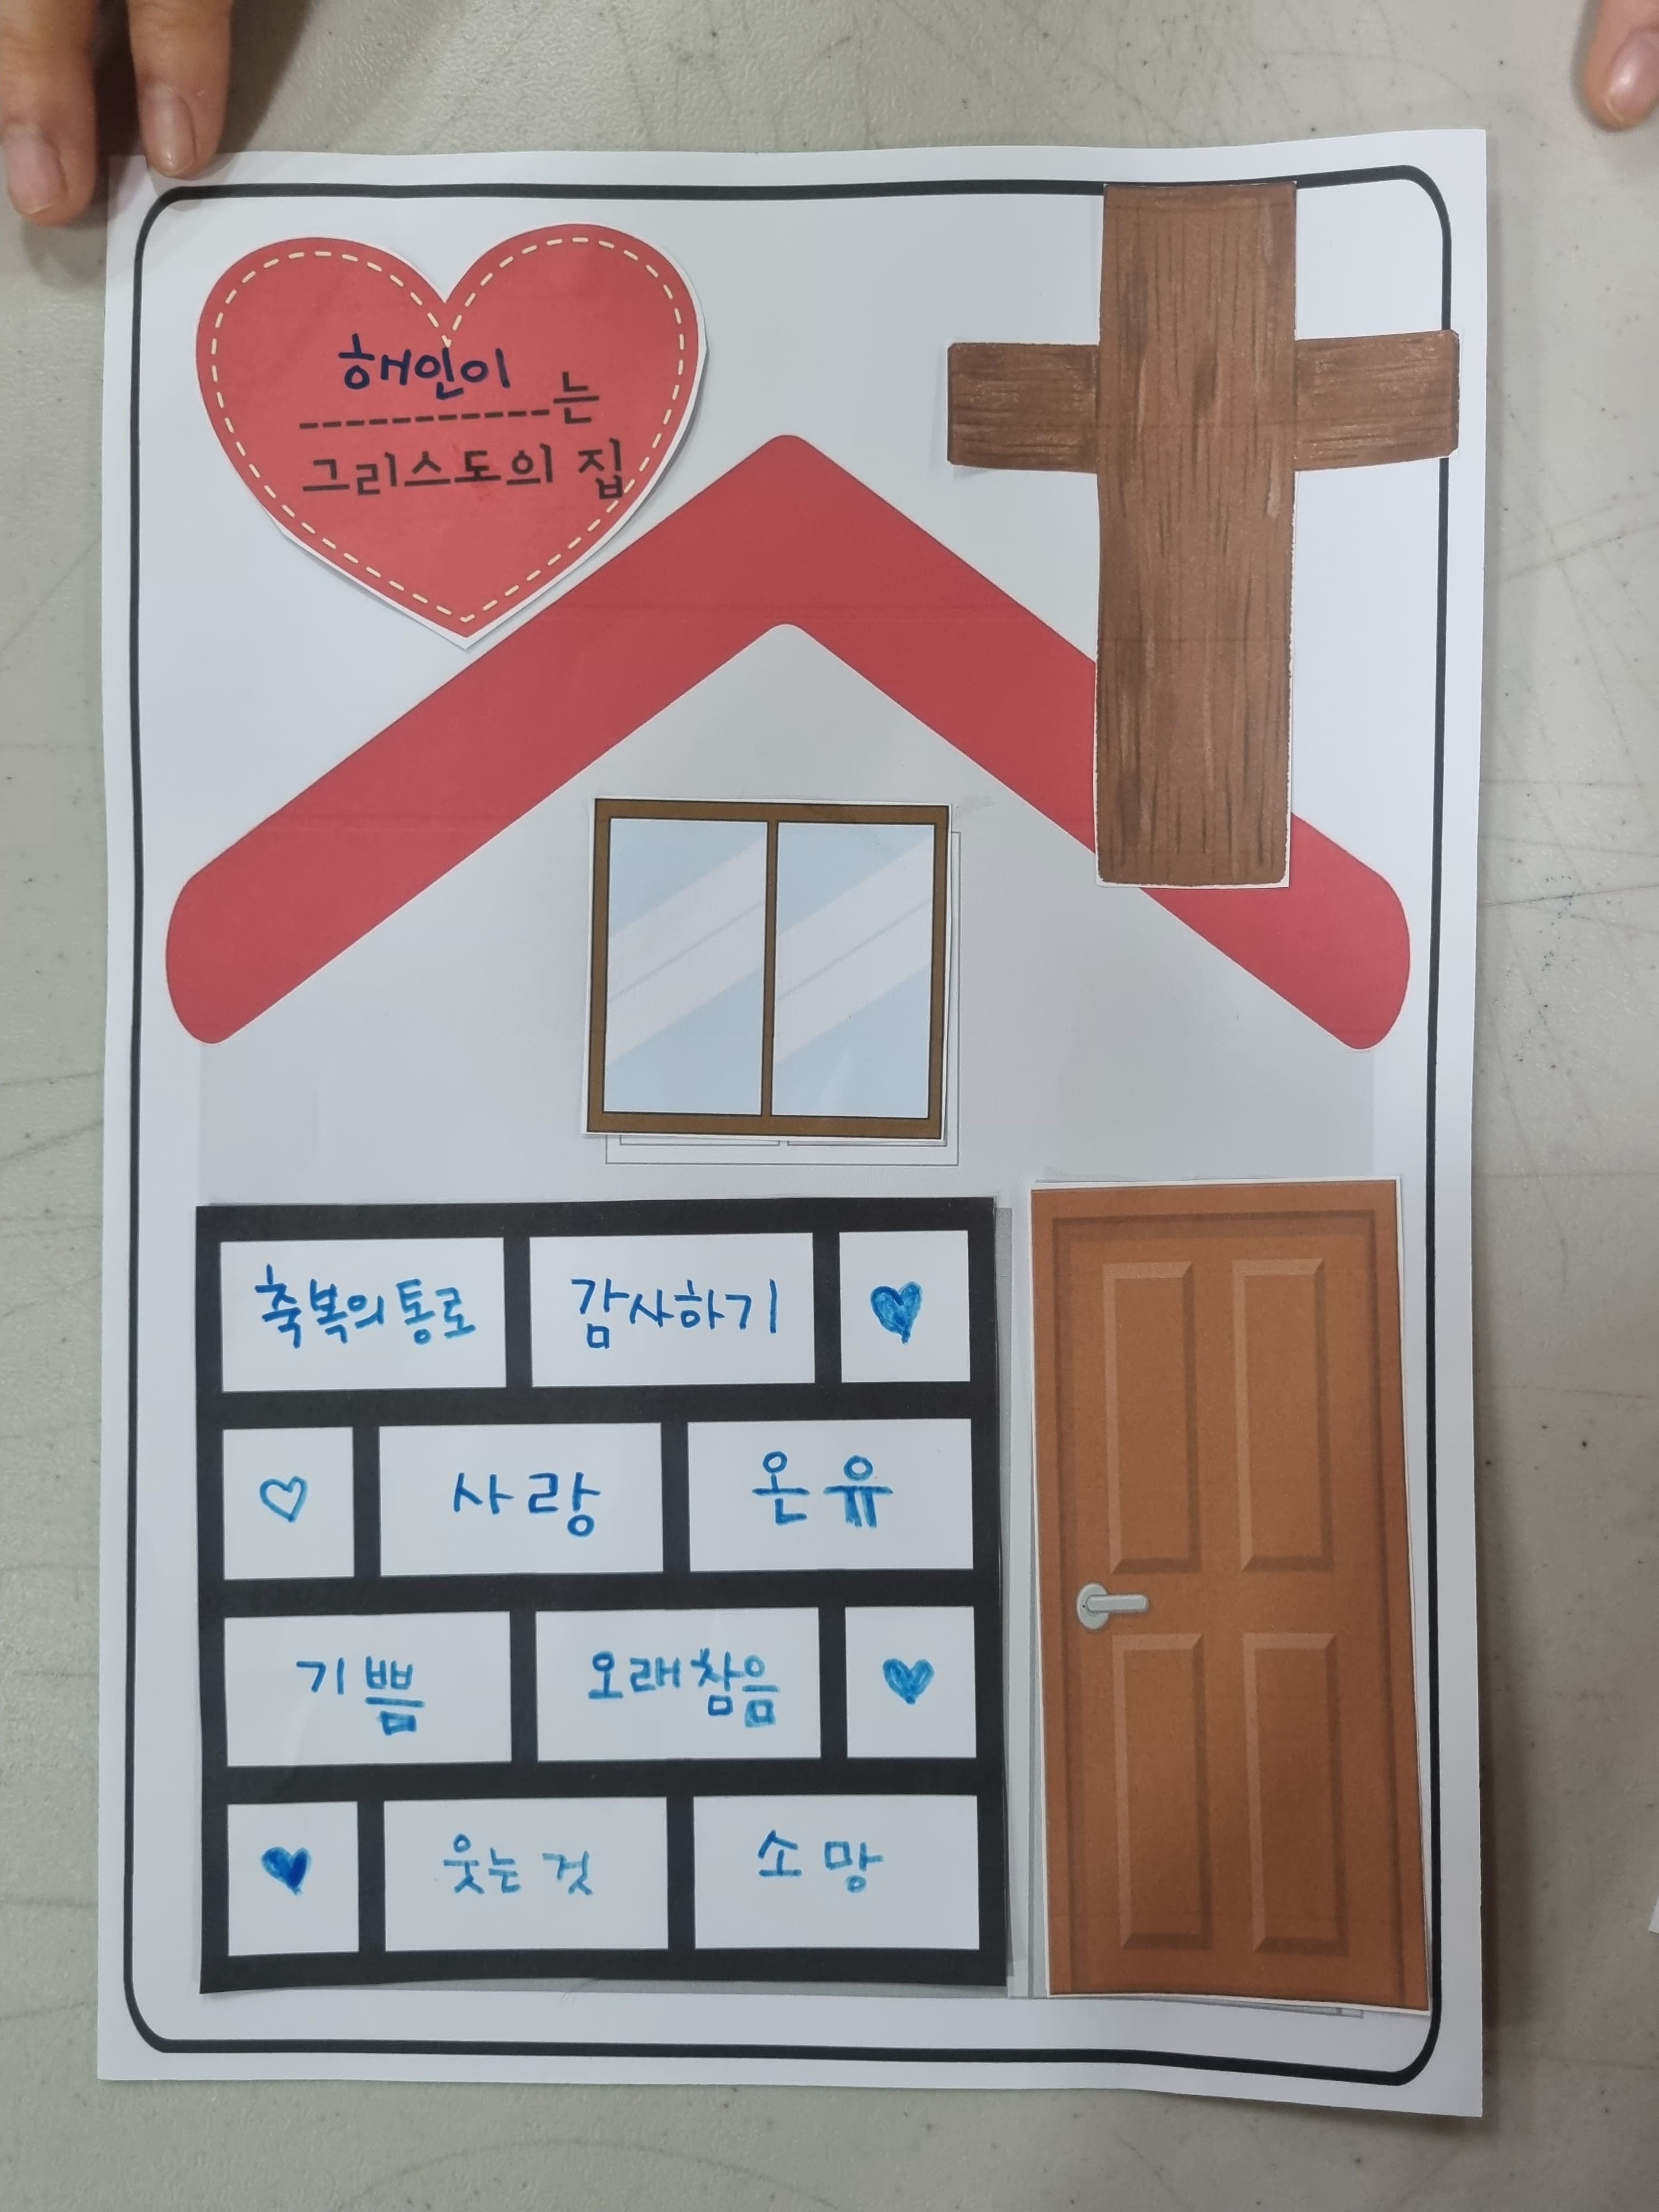 해인이는
그리스도의 집
축복의 통로 감사하기
사랑 온유
기쁨 오래참음
웃는 것 소망